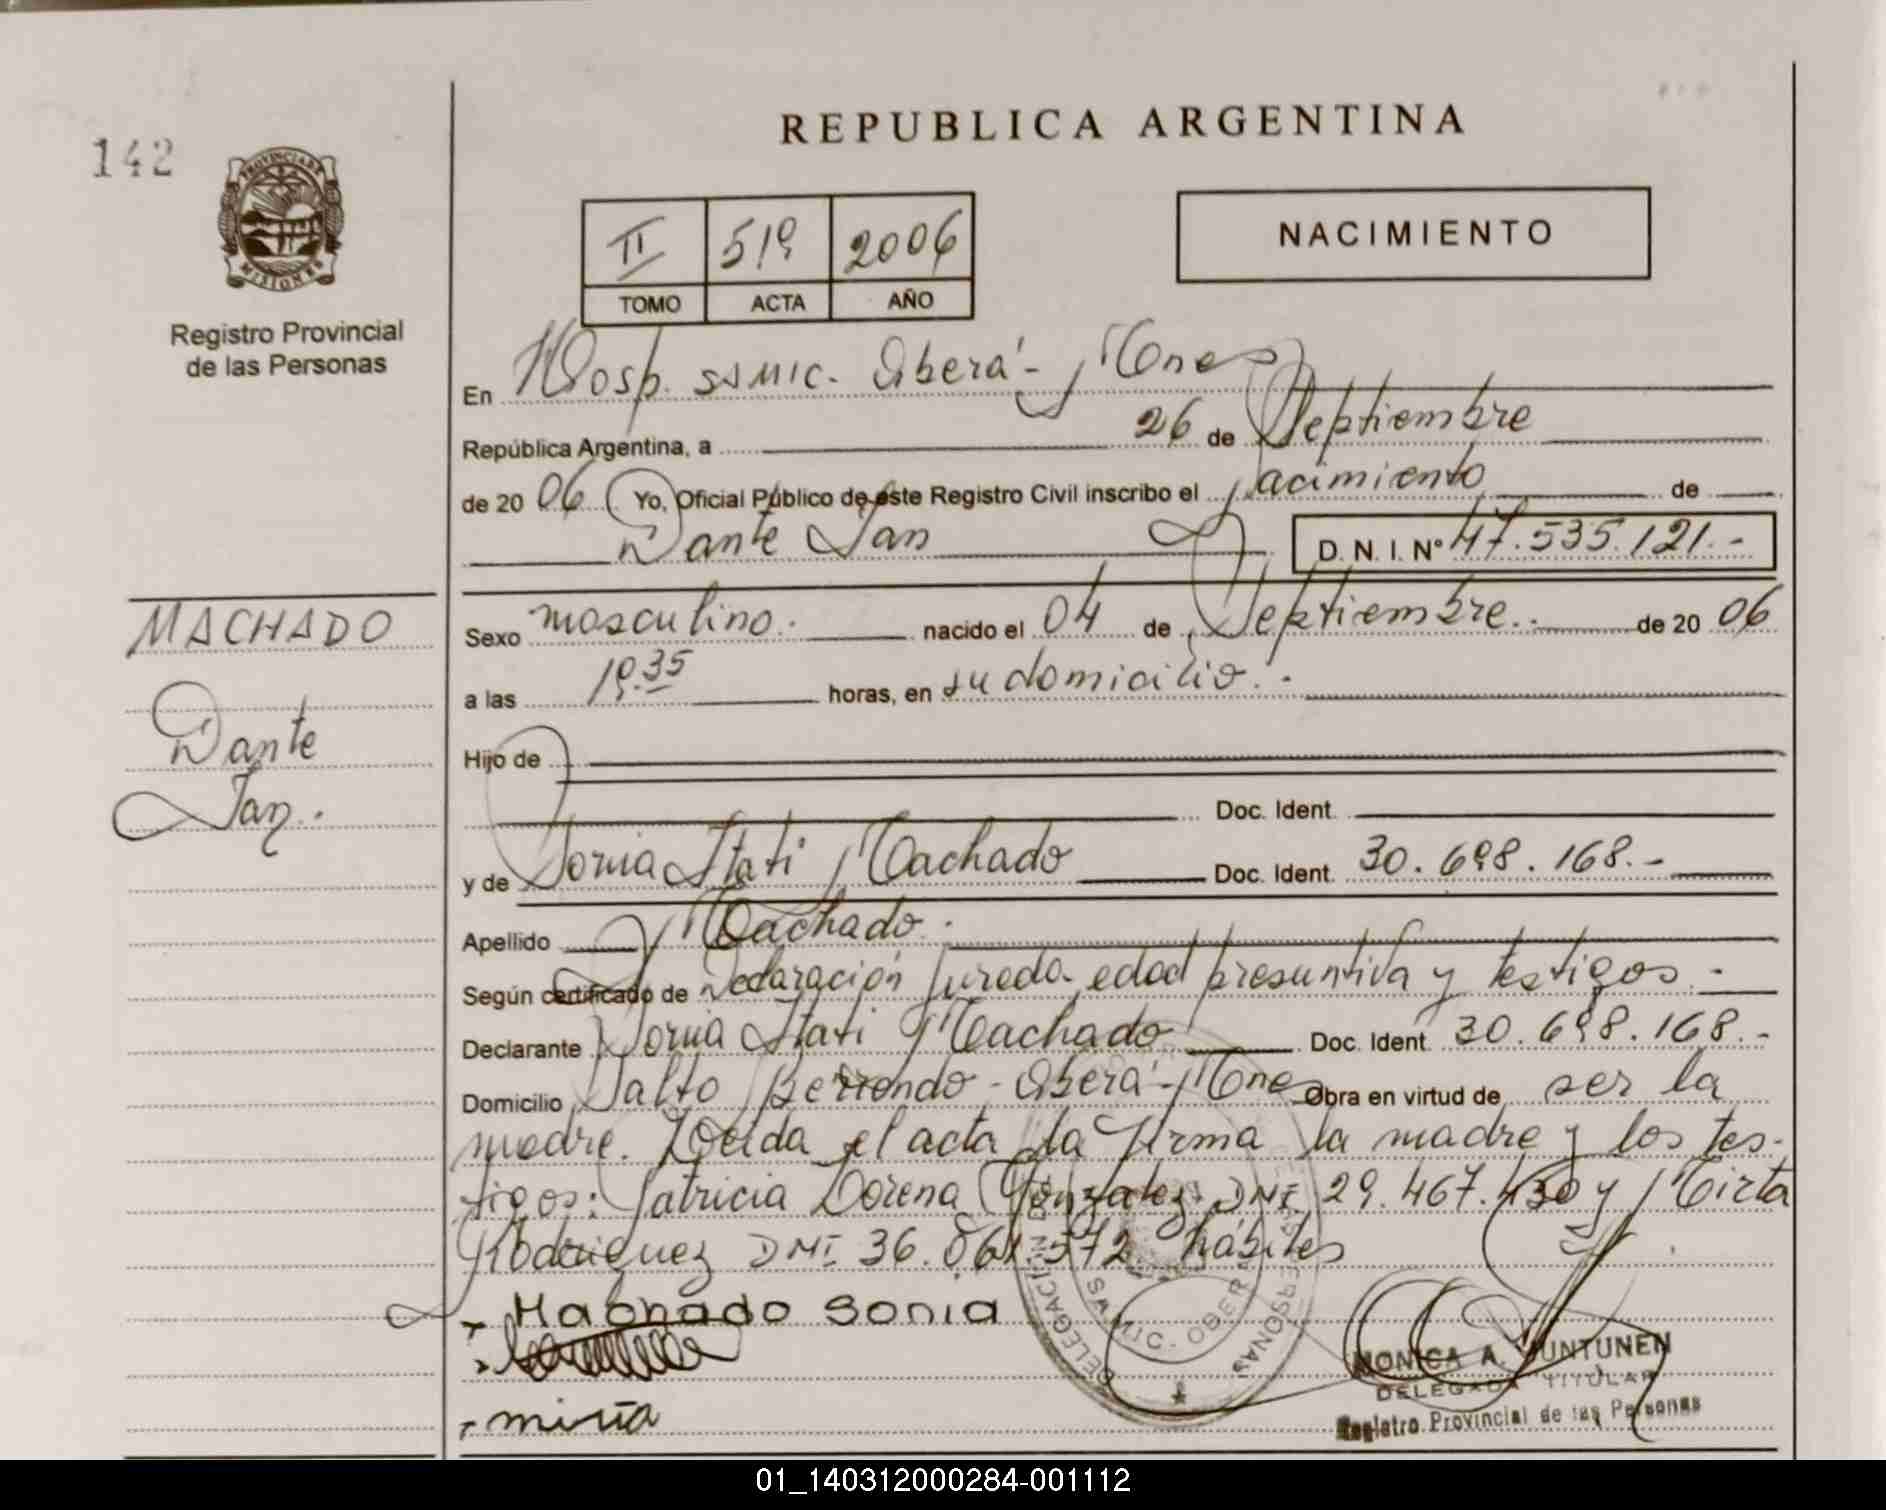 REPUBLICA ARGENTINA
142
PROVINCIA DE
MISIONES
Registro Provincial
de las Personas
II 519 2006
TOMO ACTA AÑO
NACIMIENTO
En Hosp. SAMIC. Oberá - Mnes
República Argentina, a 26 de Septiembre
de 20 06 Yo, Oficial Público de este Registro Civil inscribo el Nacimiento de
Dante Ian D. N. I. Nº 47.535.121.-
MACHADO
Dante
Ian.
Sexo masculino. nacido el 04 de Septiembre. de 20 06
a las 19.35 horas, en su domicilio.
Hijo de
Doc. Ident.
y de Sonia Itati Machado Doc. Ident. 30.698.168.-
Apellido Machado.
Según certificado de Declaración Jurada edad presuntiva y testigos.-
Declarante Sonia Itati Machado Doc. Ident. 30.698.168.-
Domicilio Salto Berrondo - Oberá - Mnes Obra en virtud de ser la
madre. Leída el acta la firma la madre y los tes-
tigos: Patricia Lorena Gonzalez DNI. 29.467.430 y Mirta
Rodriguez DNI 36.061.572 hábiles
- Machado Sonia
- mirta
DELEGACION
SAMIC - OBERA
PERSONAS
MONICA A. JUNTUNEN
DELEGADA TITULAR
Registro Provincial de las Personas
01_140312000284-001112